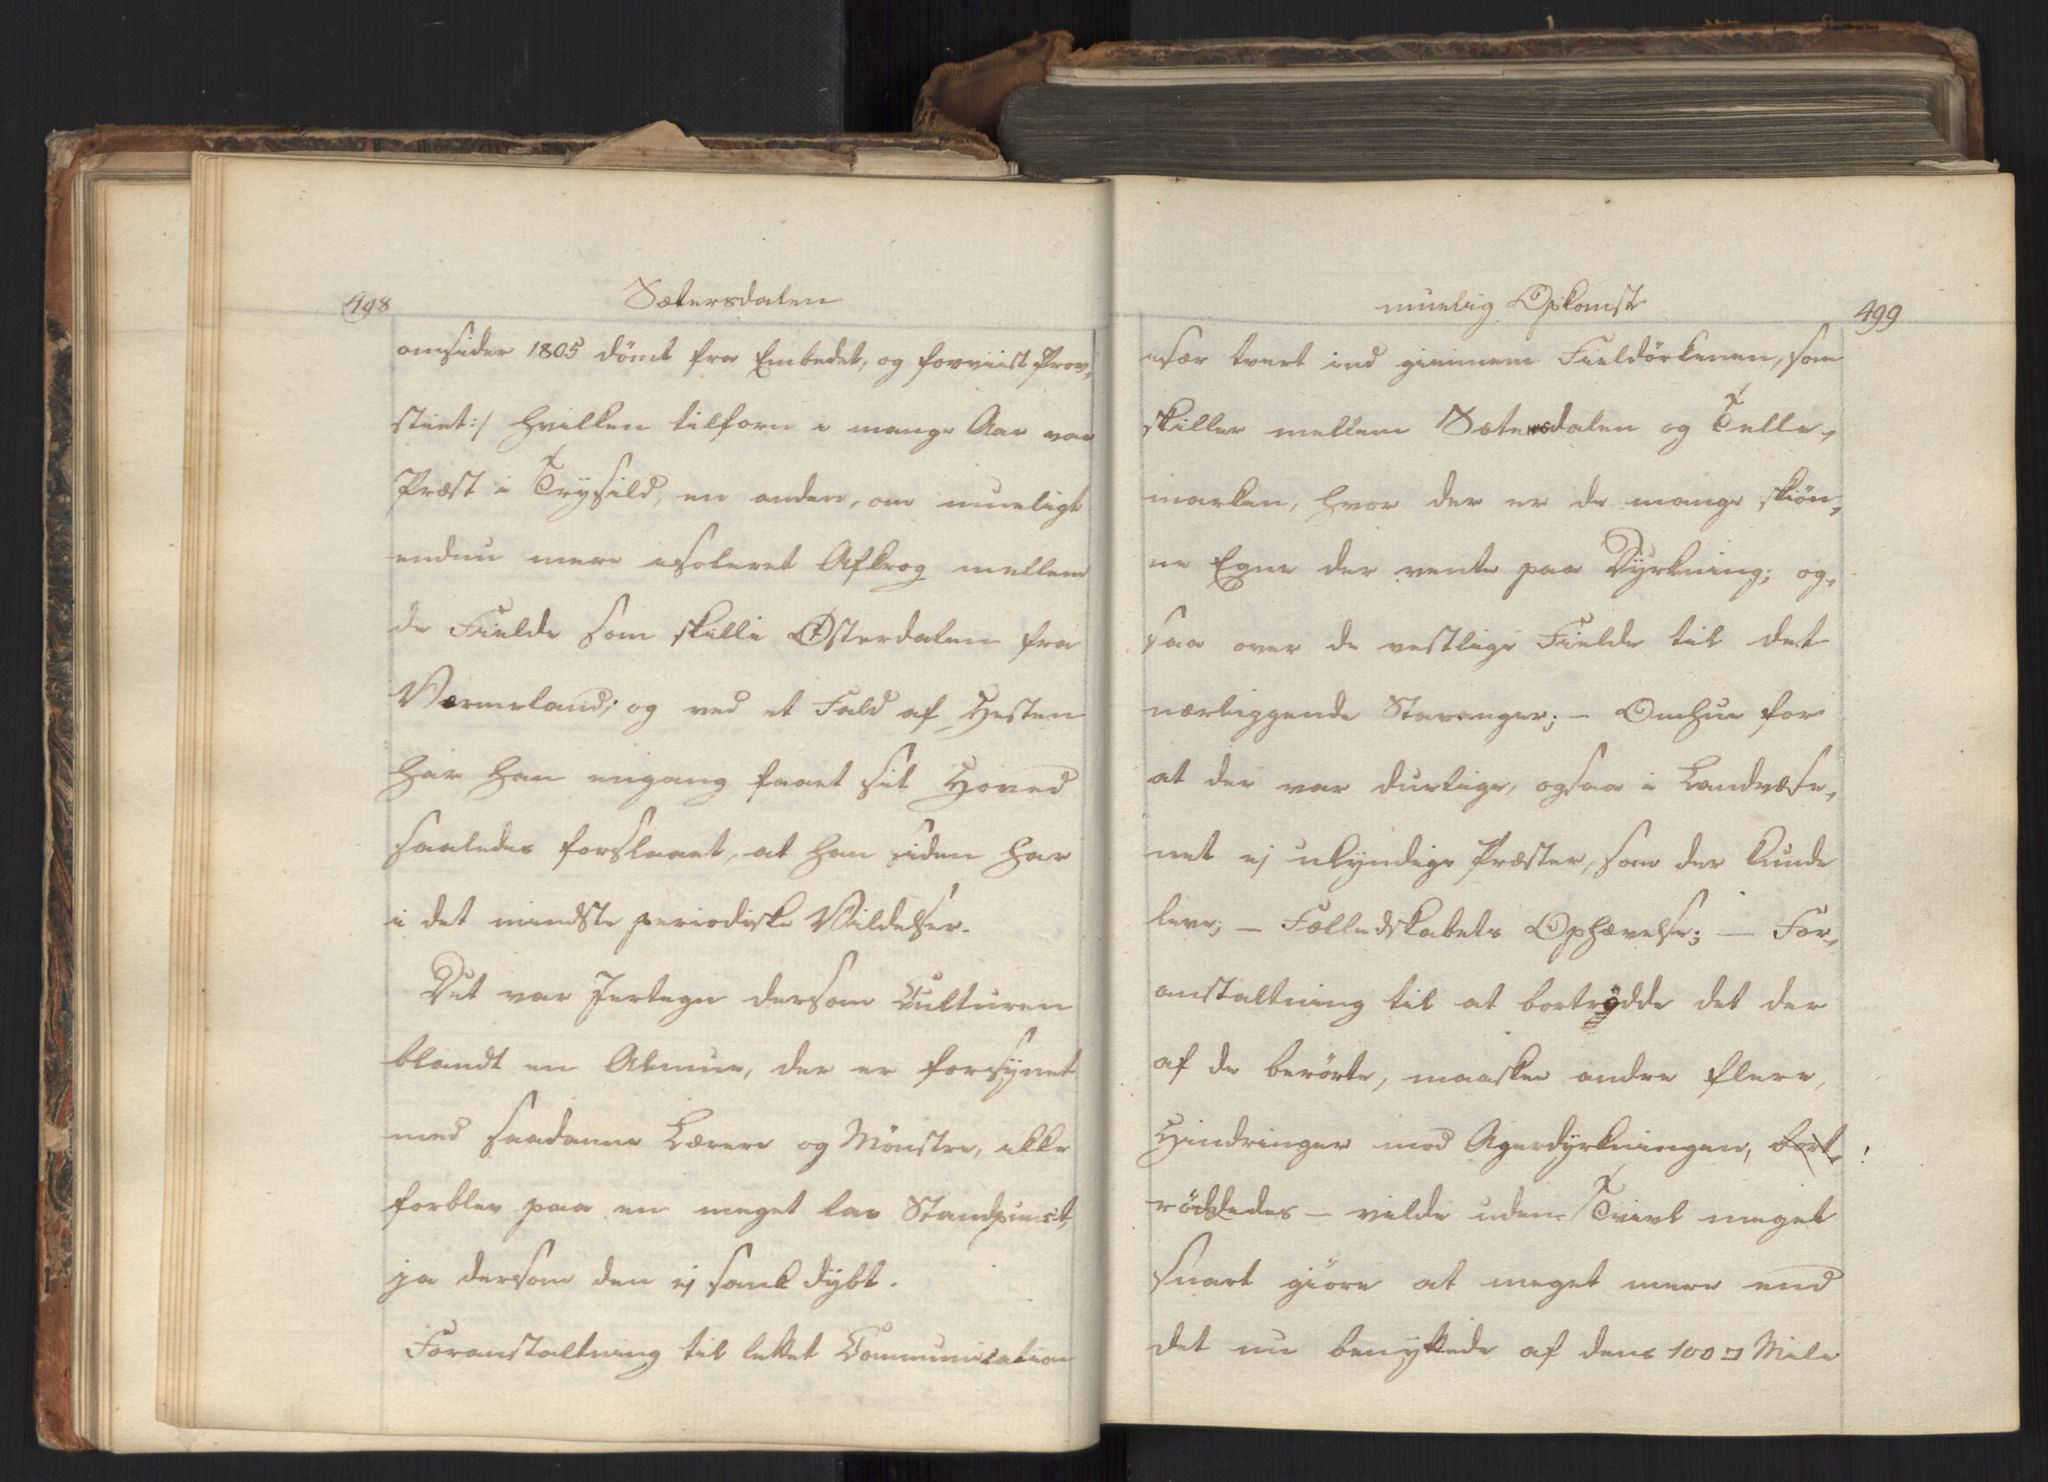 498
Sætersdalen
omsider 1805 dömt fra Embedet, og forviist Prov,
stiet:/ hvilken tilforn i mange Aar var
Præst i Trÿsild, en anden, om mueligt
endnu mere isoleret Afkrog mellem
de Fielde som skille Østerdalen fra
Værmeland; og ved et Fald af Hesten
har han engang faaet sit Hoved
saaledes forslaaet, at han siden har
i det mindste periodiske Vildelser.
Det var Jertegn dersom Culturen
blandt en Almue, der er forsÿnet
med saadanne Lærere og Mønstre, ikke
forblev paa en meget lav Standpunct,
ja dersom den ej sank dÿbt.
Foranstaltning til lettet Communication
muelig Opkomst
499
især tvert ind giennem Fieldörkenen, som
skiller mellem Sætersdalen og Telle,
marken, hvor der er de mange skiön,
ne Egne der vente paa Dÿrkning; og,
saa over de vestlige Fielde til det
nærliggende Stavanger; – Omhue for
at der var duelige, ogsaa i Landvæse,
net ej ukÿndige Præster, som der kunde
leve; – Fælledskabets Ophævelse; – For,
anstaltning til at bortrÿdde det der
af de berörte, maaskee andre flere,
Hindringer mod Agerdÿrkningen, bort,
rÿddedes – vilde uden Tvivl meget
snart giöre at meget mere end
det nu benÿttede af dens 100 □ Mile